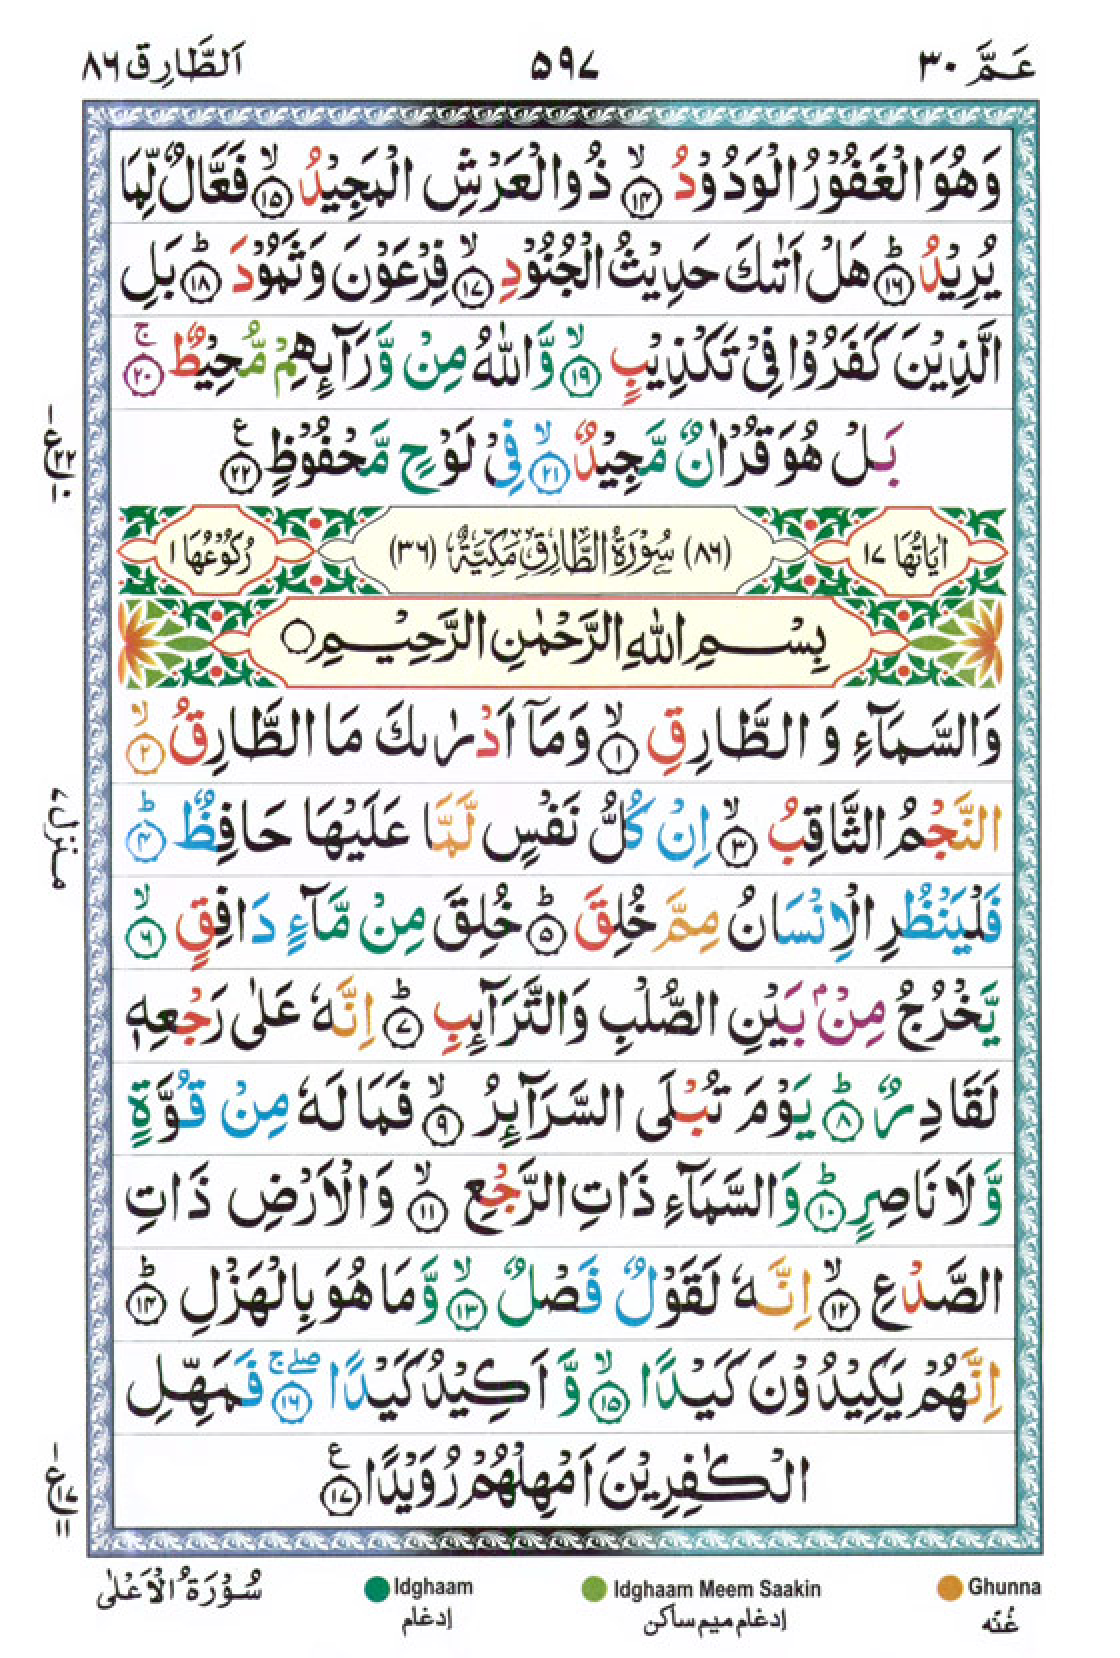 عَمَّ ٣٠ ٥٩٧ اَلطَّارِق ٨٦
وَهُوَ الْغَفُوْرُ الْوَدُوْدُ ۙ‏﴿۱۴﴾ ذُو الْعَرْشِ الْمَجِيْدُ ۙ‏﴿۱۵﴾ فَعَّالٌ لِّمَا
يُرِيْدُ ؕ‏﴿۱۶﴾ هَلْ اَتٰىكَ حَدِيْثُ الْجُنُوْدِ ۙ‏﴿۱۷﴾ فِرْعَوْنَ وَثَمُوْدَ ؕ‏﴿۱۸﴾ بَلِ
الَّذِيْنَ كَفَرُوْا فِىْ تَكْذِيْبٍ ۙ‏﴿۱۹﴾ وَّاللّٰهُ مِنْ وَّرَآئِهِمْ مُّحِيْطٌ ۚ‏﴿۲۰﴾
بَلْ هُوَ قُرْاٰنٌ مَّجِيْدٌ ۙ‏﴿۲۱﴾ فِىْ لَوْحٍ مَّحْفُوْظٍ ‏﴿۲۲﴾ ع
ع ٢٢ ١٠
اٰيَاتُهَا ١٧ (٨٦) سُوْرَةُ الطَّارِقِ مَكِّيَّةٌ (٣٦) رُكُوْعُهَا ١
بِسْمِ اللّٰهِ الرَّحْمٰنِ الرَّحِيْمِ ○
وَالسَّمَآءِ وَالطَّارِقِ ۙ‏﴿۱﴾ وَمَآ اَدْرٰىكَ مَا الطَّارِقُ ۙ‏﴿۲﴾
النَّجْمُ الثَّاقِبُ ۙ‏﴿۳﴾ اِنْ كُلُّ نَفْسٍ لَّمَّا عَلَيْهَا حَافِظٌ ؕ‏﴿۴﴾
منزل ٧
فَلْيَنْظُرِ الْاِنْسَانُ مِمَّ خُلِقَ ؕ‏﴿۵﴾ خُلِقَ مِنْ مَّآءٍ دَافِقٍ ۙ‏﴿۶﴾
يَّخْرُجُ مِنْۢ بَيْنِ الصُّلْبِ وَالتَّرَآئِبِ ؕ‏﴿۷﴾ اِنَّهٗ عَلٰى رَجْعِهٖ
لَقَادِرٌ ؕ‏﴿۸﴾ يَوْمَ تُبْلَى السَّرَآئِرُ ۙ‏﴿۹﴾ فَمَا لَهٗ مِنْ قُوَّةٍ
وَّلَا نَاصِرٍ ؕ‏﴿۱۰﴾ وَالسَّمَآءِ ذَاتِ الرَّجْعِ ۙ‏﴿۱۱﴾ وَالْاَرْضِ ذَاتِ
الصَّدْعِ ۙ‏﴿۱۲﴾ اِنَّهٗ لَقَوْلٌ فَصْلٌ ۙ‏﴿۱۳﴾ وَّمَا هُوَ بِالْهَزْلِ ؕ‏﴿۱۴﴾
اِنَّهُمْ يَكِيْدُوْنَ كَيْدًا ۙ‏﴿۱۵﴾ وَّاَكِيْدُ كَيْدًا ۖۚ‏﴿۱۶﴾ فَمَهِّلِ
الْكٰفِرِيْنَ اَمْهِلْهُمْ رُوَيْدًا ‏﴿۱۷﴾ ع
ع ١٧ ١١
سُوْرَةُ الْاَعْلٰى
Idghaam
إدغام
Idghaam Meem Saakin
إدغام ميم ساكن
Ghunna
غُنّه